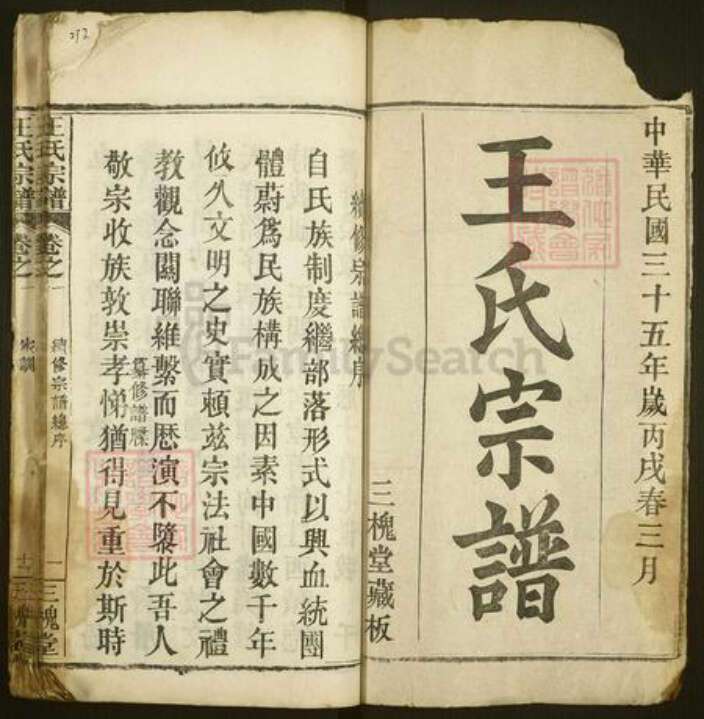 中華民國三十五年歲丙戌春三月
王氏宗譜
三槐堂藏板
續修宗譜總序
自氏族制度繼部落形式以興血統團
體蔚為民族構成之因素中國數千年
攸久文明之史實賴茲宗法社會之禮
教觀念關聯維繫而歷演不隳此吾人
敬宗收族敦崇孝悌猶得見重於斯時
纂修譜牒
王氏宗譜 卷之一
續修宗譜總序
一 三槐堂
王氏宗譜 卷之一
家訓
十二
272
FamilySearch